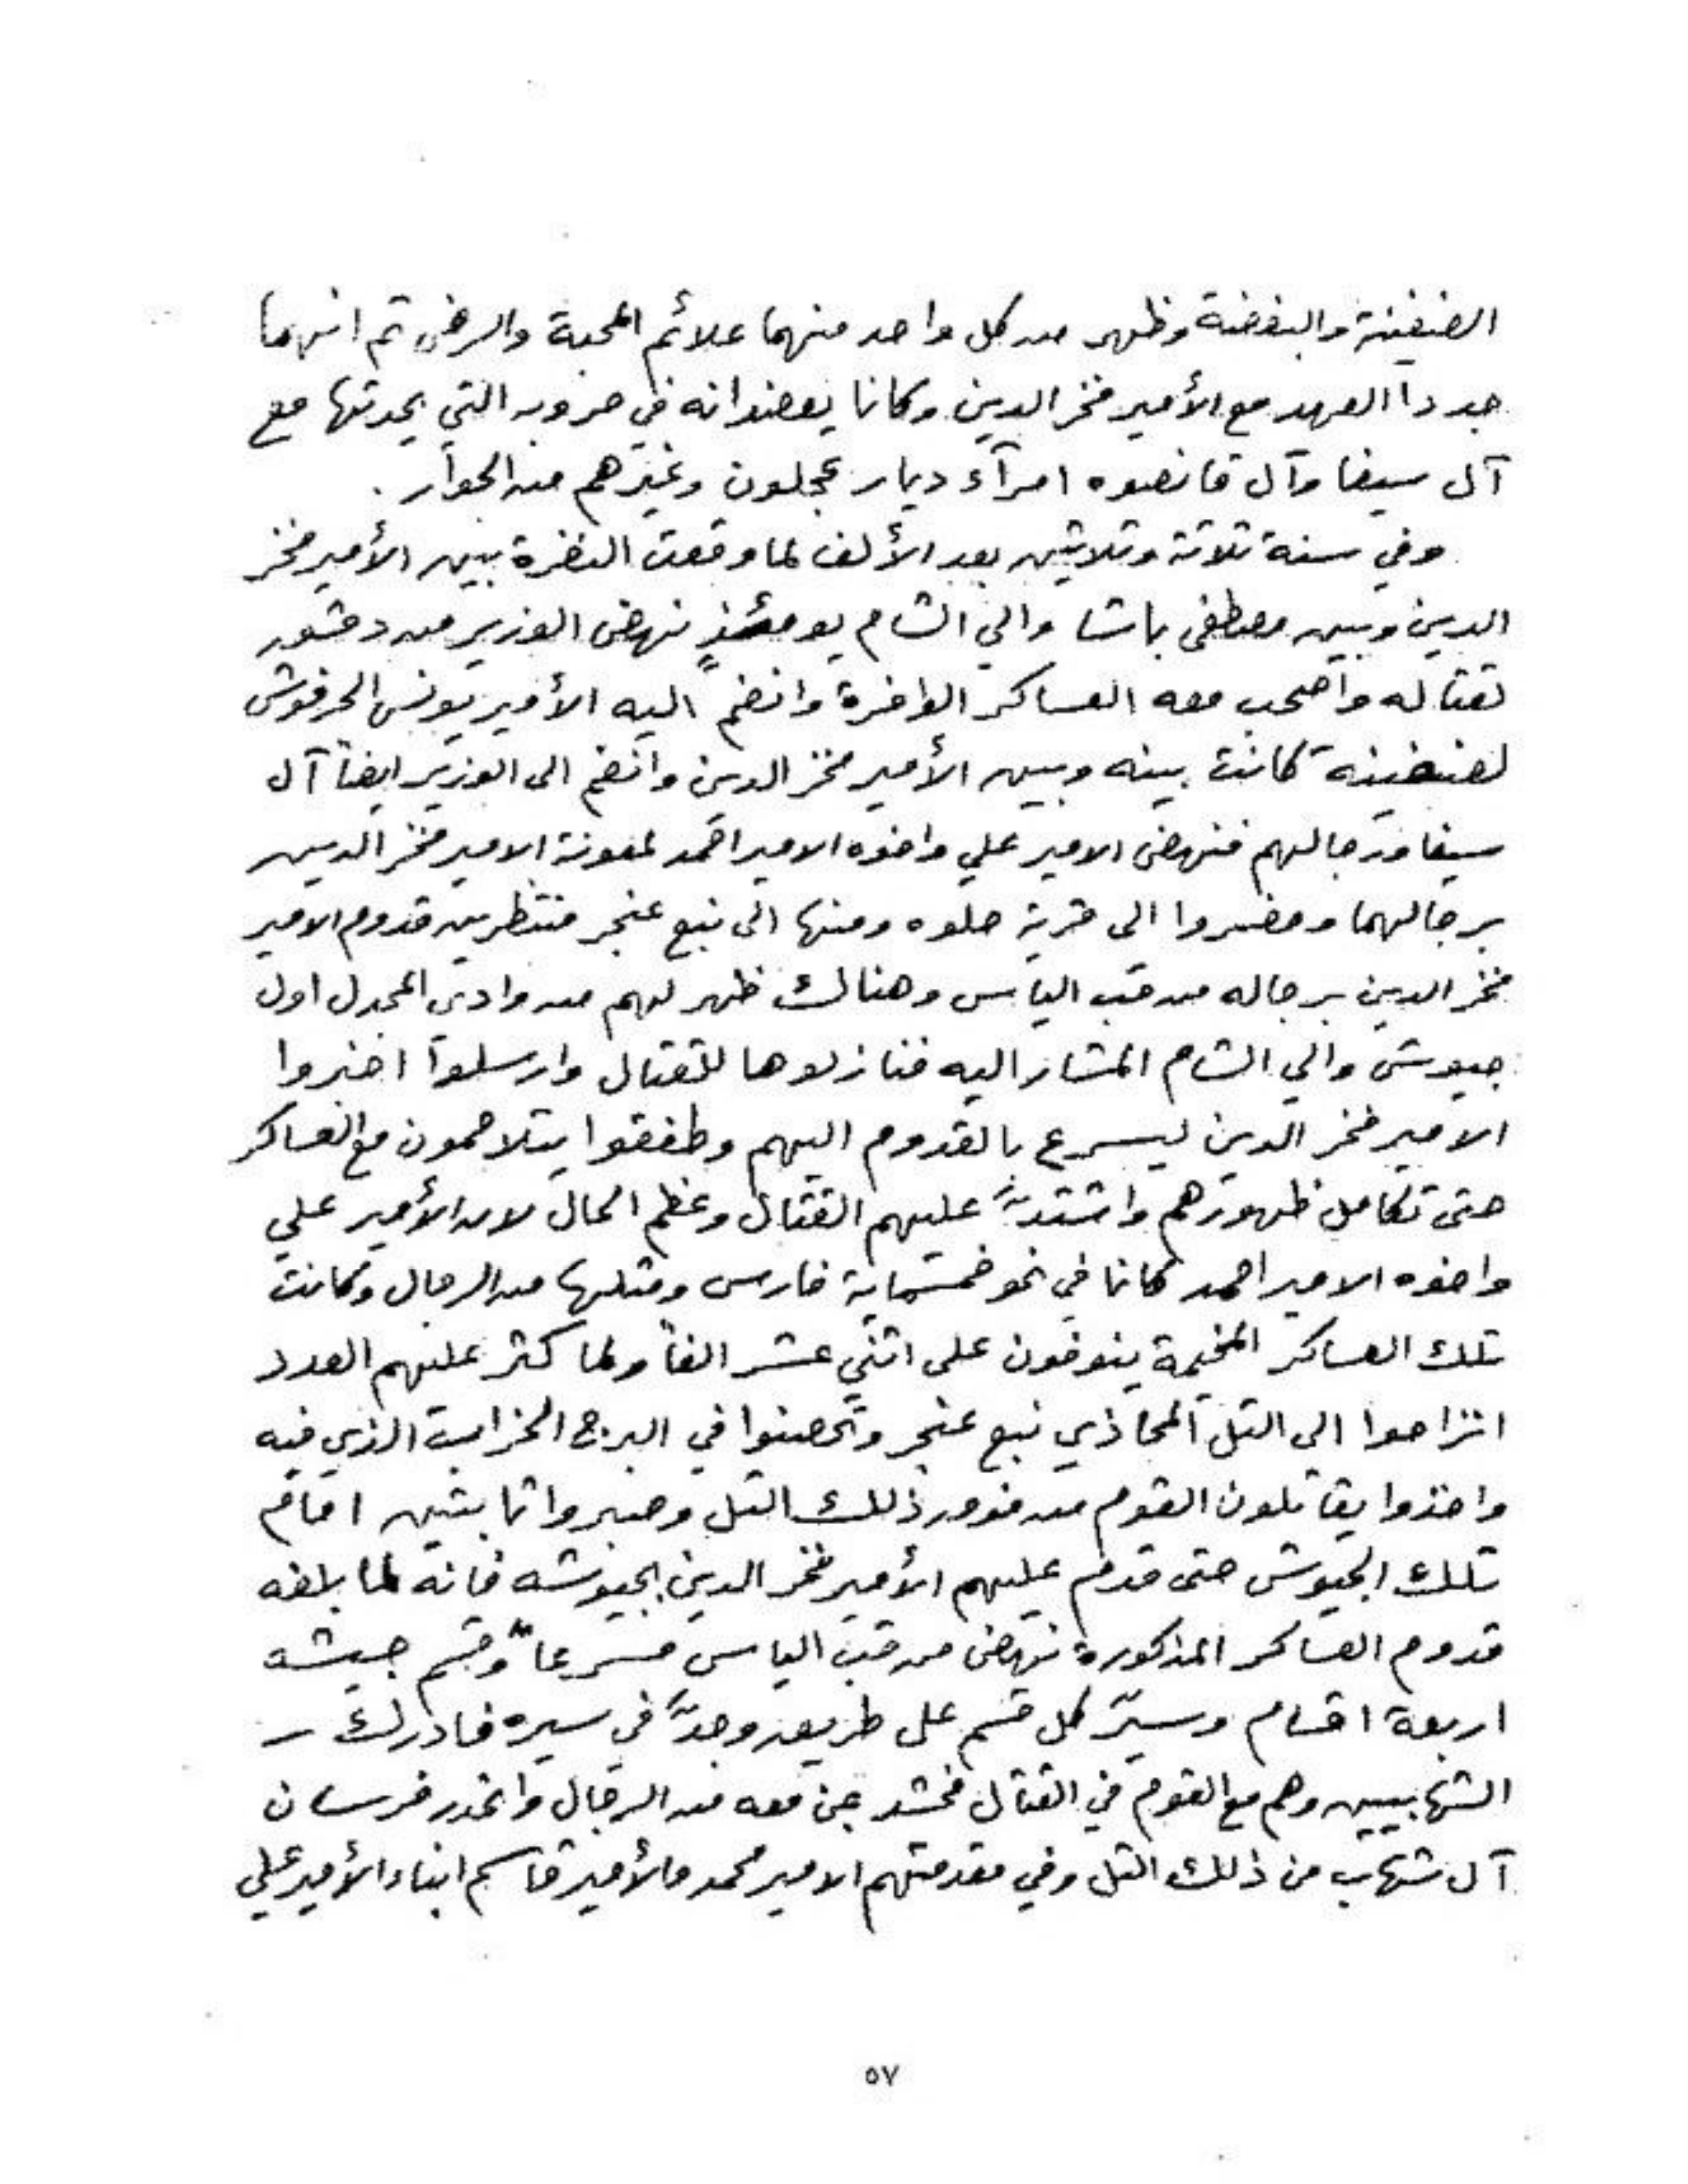 الضغينة والبغضة وظهر من كل واحد منهما علائم المحبة والرضى ثم انهما
جددا العهد مع الأمير فخر الدين وكانا يعضدانه في حروبه التي يحدثها مع
آل سيفا وآل قانصوه امرآء ديار عجلون وغيرهم من الجوار .
وفي سنة ثلاثة وثلاثين بعد الألف لما وقعت النفرة بين الأمير فخر
الدين وبين مصطفى باشا والي الشام يومئذٍ نهض الوزير من دمشق
لقتاله واصحب معه العساكر الوافرة وانضم اليه الأمير يونس الحرفوش
لضغينة كانت بينه وبين الأمير فخر الدين وانضم الى الوزير ايضاً آل
سيفا ورجالهم فنهض الامير علي واخوه الامير احمد لمعونة الامير فخر الدين
برجالهما وحضروا الى قرية حلوه ومنها الى نبع عنجر منتظرين قدوم الامير
فخر الدين برجاله من قب الياس وهنالك ظهر لهم من وادي المجدل اول
جيوش والي الشام المشار اليه فنازلوها للقتال وارسلوا اخبروا
الامير فخر الدين ليسرع بالقدوم اليهم وطفقوا يتلاحمون مع العساكر
حتى تكامل ظهورهم واشتدَّ عليهم القتال وعظم الحال لان الأمير علي
واخوه الامير احمد كانا في نحو خمسماية فارس ومثلها من الرجال وكانت
تلك العساكر المخيمة ينوفون على اثني عشر الفاً ولما كثر عليهم العدد
انزاحوا الى التل المحاذي نبع عنجر وتحصنوا في البرج الخراب الذي فيه
واخذوا يقاتلون القوم من فوق ذلك التل وصبروا ثابتين امام
تلك الجيوش حتى قدم عليهم الأمير فخر الدين بجيوشه فانه لما بلغه
قدوم العساكر المذكورة نهض من قب الياس مسرعاً وقسم جيشه
اربعة اقسام وسيّر كل قسم على طريق وجدَّ في سيره فادرك
الشهابيين وهم مع القوم في القتال فحشد بمن معه من الرجال وانحدر فرسان
آل شهاب من ذلك التل وفي مقدمتهم الامير محمد والأمير قاسم ابناء الأمير علي
٥٧